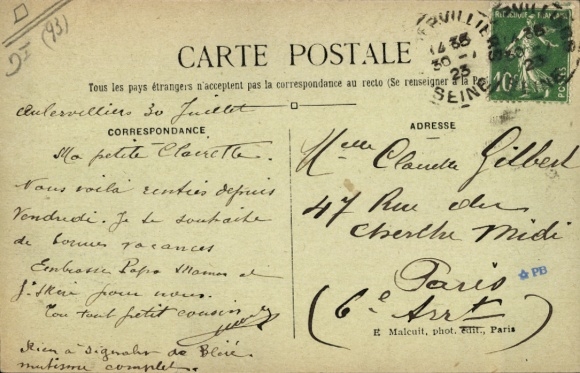 (93)
CARTE POSTALE
Tous les pays étrangers n'acceptent pas la correspondance au recto (Se renseigner à la
Aubervilliers 30 Juillet
CORRESPONDANCE
Ma petite Clairette.
Nous voilà rentrés depuis
Vendredi. Je te souhaite
de bonnes vacances
Embrasse Papa Maman et
pour nous.
Ton tout petit cousin
Rien à signaler de Bléré
mutisme complet.
ADRESSE
Melle Claude Gilbert
47 Rue du
Cherche Midi
Paris
(6e Arrt)
PB
E Malcuit, phot. édit., Paris
14 35
30 -
23
SEINE
10c